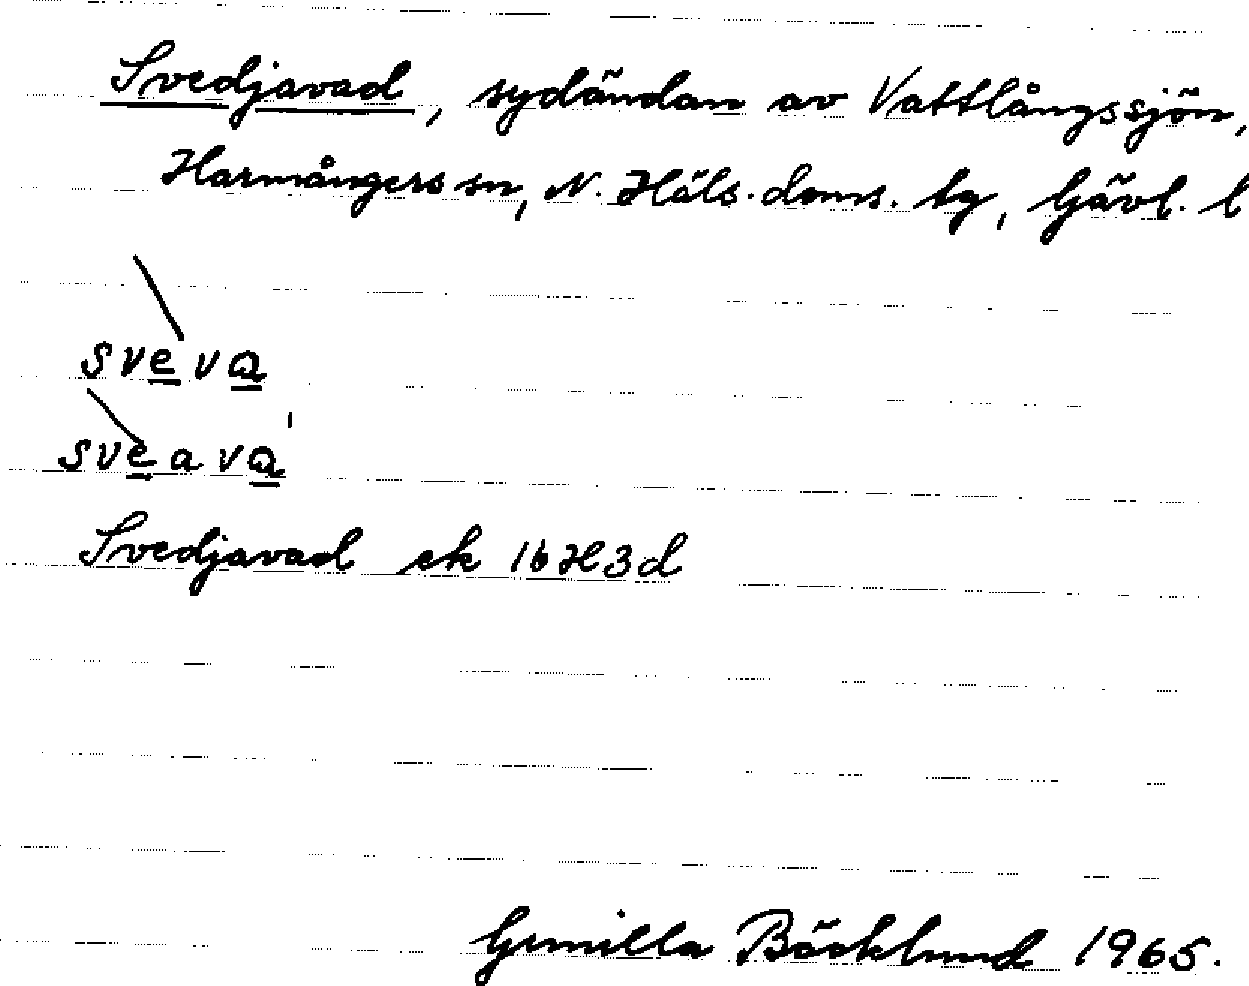 Svedjavad, sydändan av Vattlångssjön,
Harmångers sn, N. Häls. doms. tg, Gävl. l
sve va
svea va
Svedjavad ek 16H3d
Gunilla Bäcklund 1965.